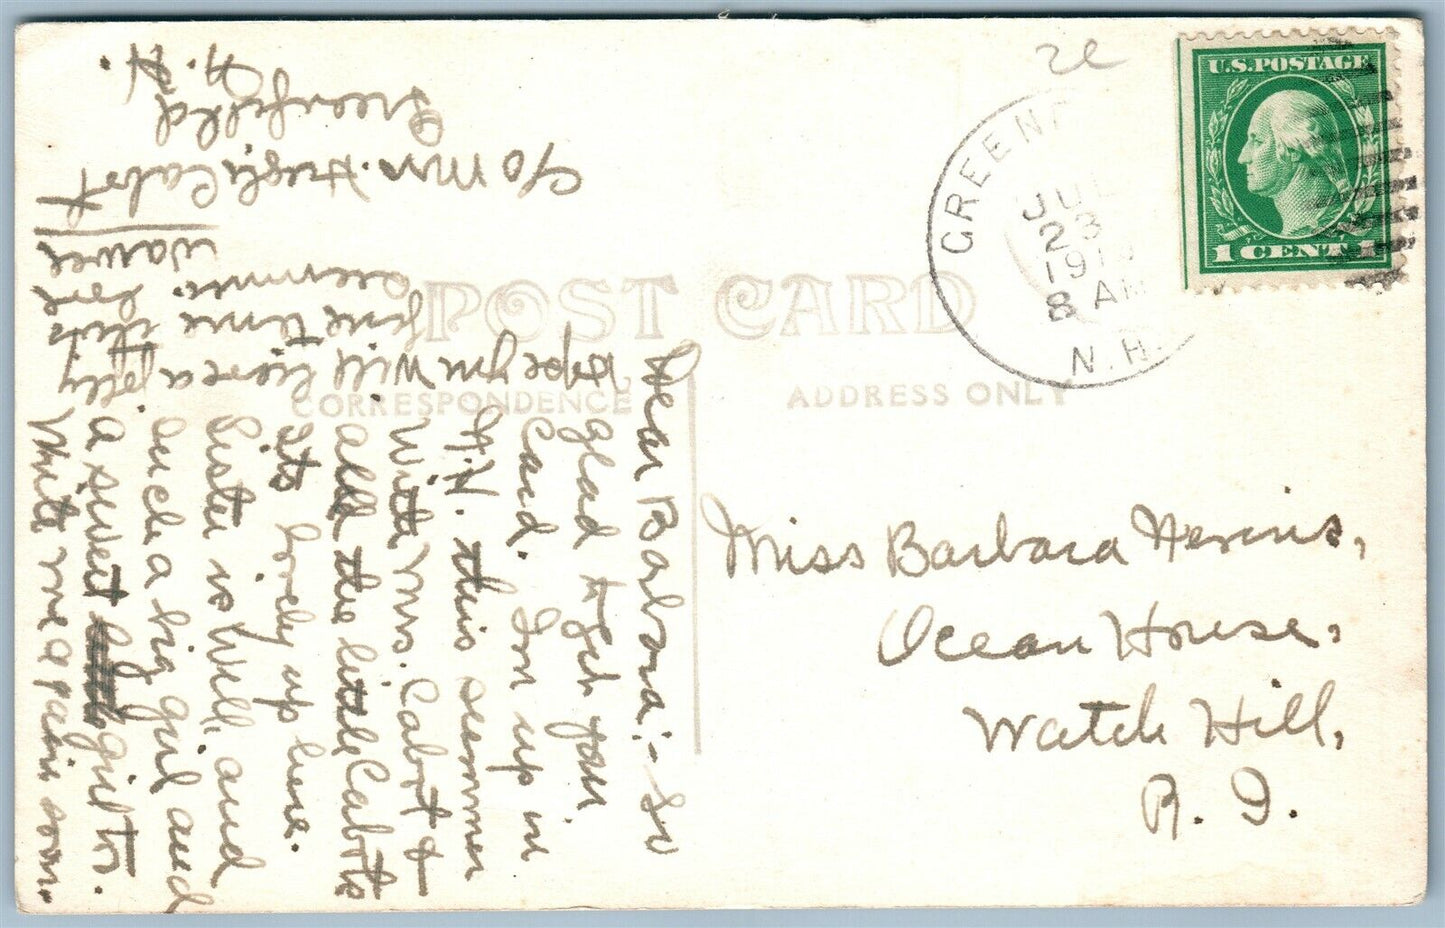 2c
U.S. POSTAGE
1 CENT 1
JUL
23
8 AM
N.H.
POST CARD
CORRESPONDENCE
ADDRESS ONLY
Miss Barbara Nevins,
Ocean House,
Watch Hill,
R. I.
Dear Barbara:- So
glad to get your
card. I'm up in
N.H. this summer
with Mrs. Cabot &
all the little Cabots
Its lovely up here.
Sister is well, and
such a big girl and
a sweet girl to.
Write me again soon.
Hope you will have a jolly
fine time this
summer.
c/o Mrs. Hugh Cabot
Greenfield
N. H.